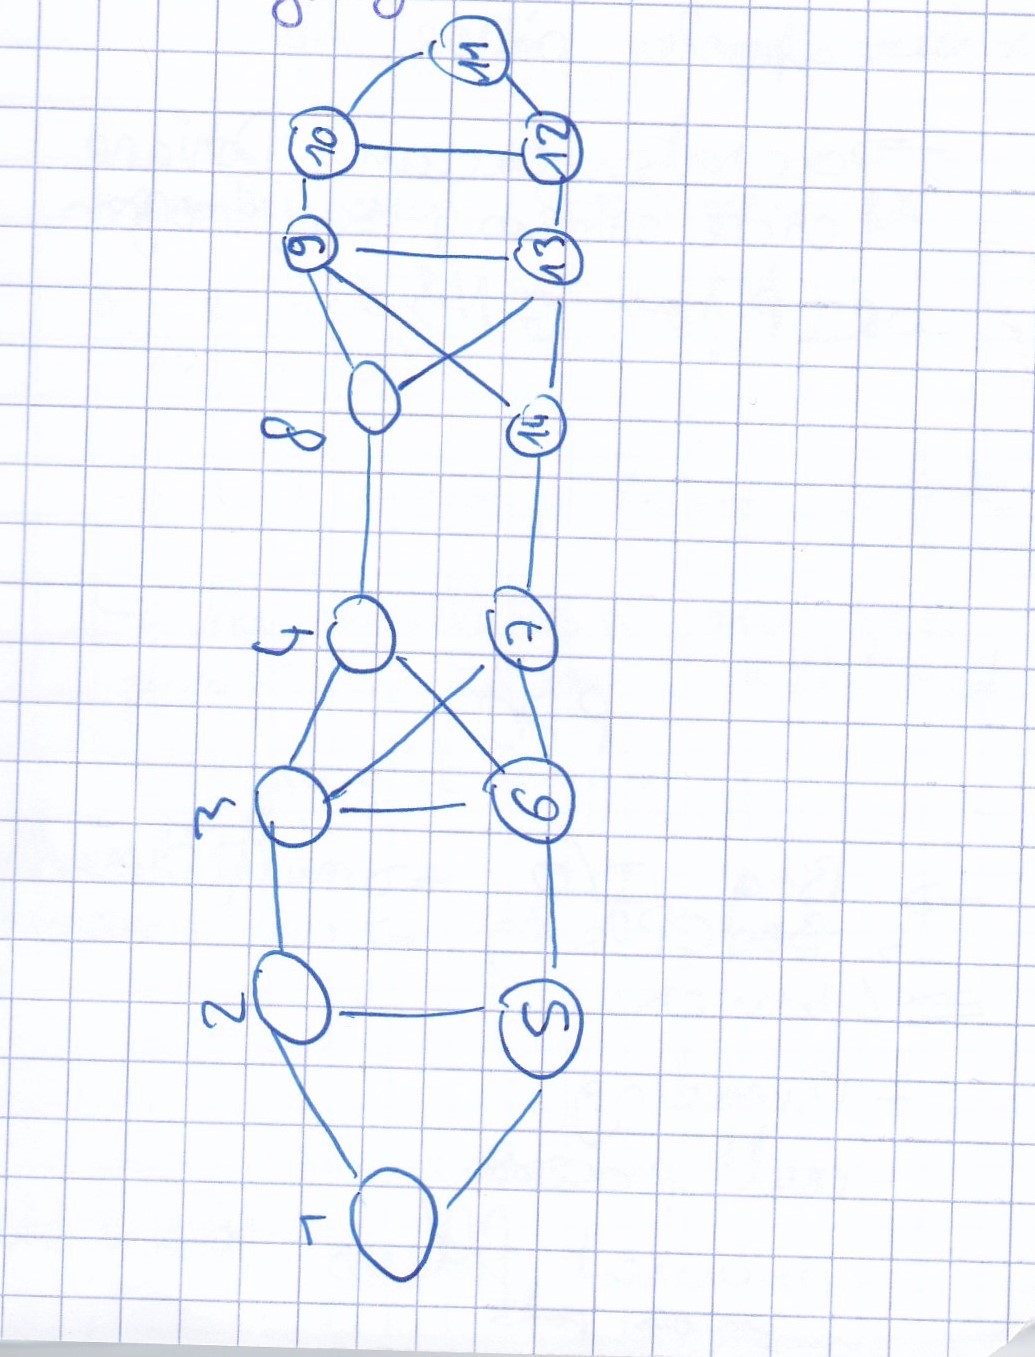 2 3
1 4 8 9 10
11
5 6 7 14 13 12